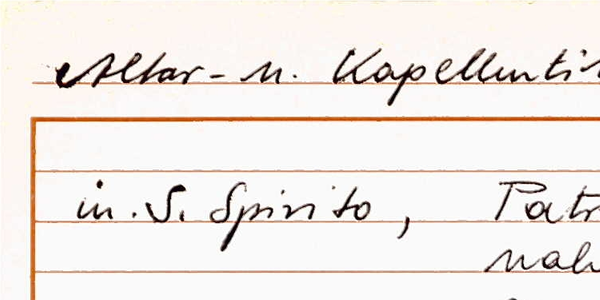 Altar- u. Kapellentit
in S. Spirito, Patr
nah